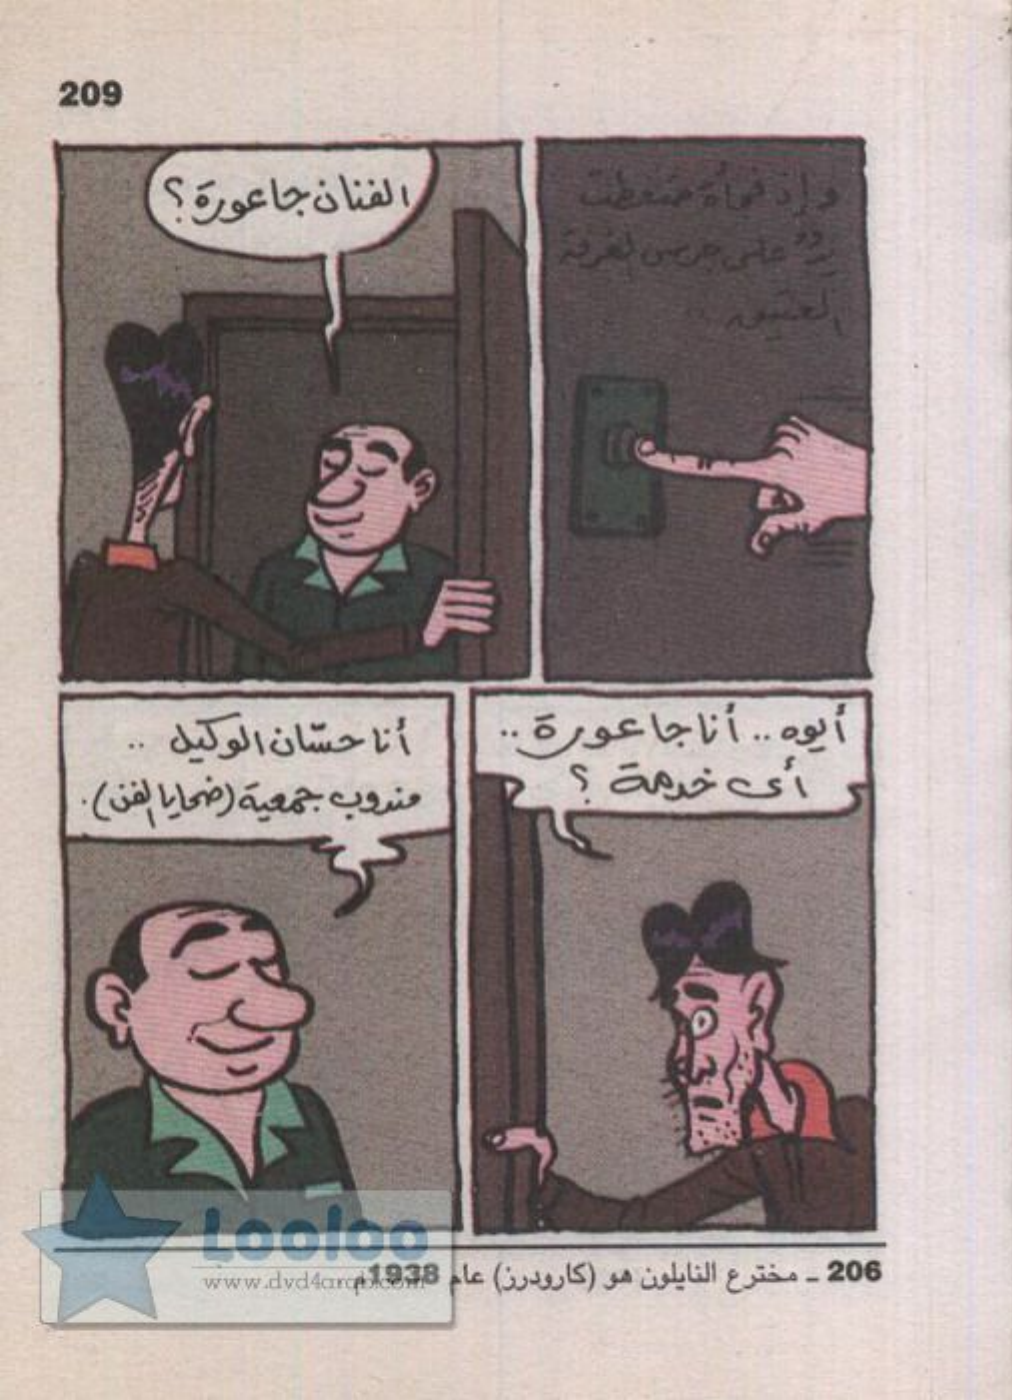 209
وإذ فجأة ضغطت
يدٌ على جرس الغرفة
العتيق..
الفنان جاعورة؟
أيوه.. أنا جاعورة..
أى خدمة؟
أنا حسّان الوكيل ..
مندوب جمعية (ضحايا الفن).
206 ـ مخترع النايلون هو (كارودرز) عام 1938م
Looloo
www.dvd4arab.com